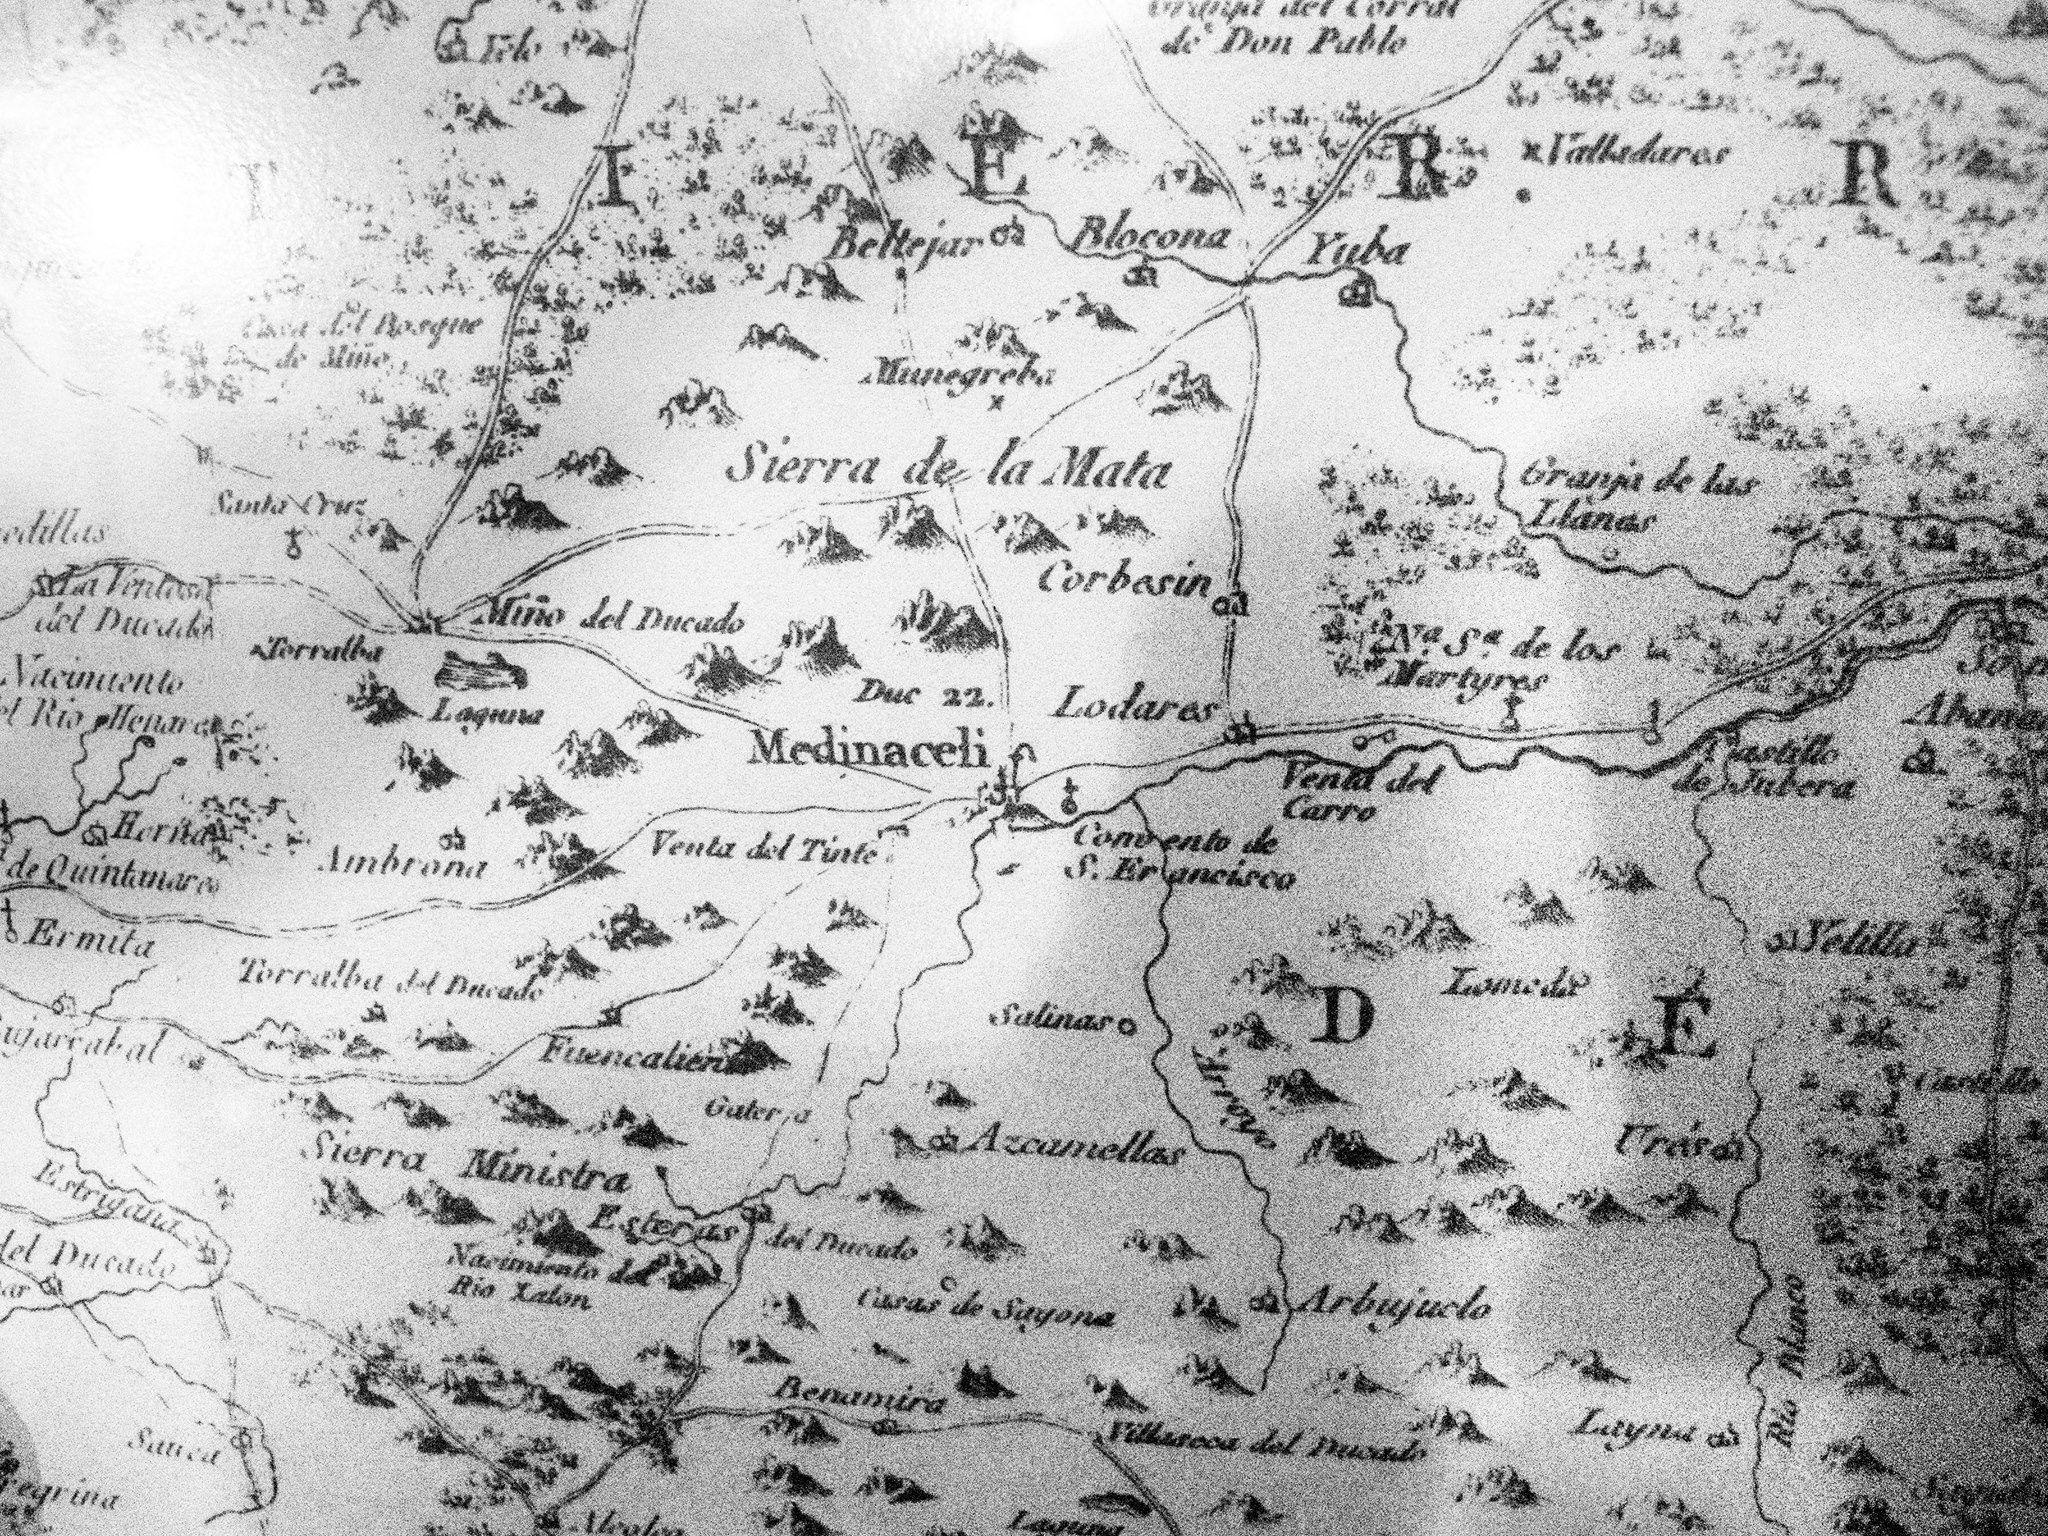 Granja del Corral
de Don Pablo
Yelo
Valladares
T I E R R
Beltejar
Blocona
Yuba
Casa del Bosque
de Miño
Munegreba
Sierra de la Mata
Granja de las
Llanas
Santa Cruz
Corbesin
La Ventosa
del Ducado
Miño del Ducado
Torralba
Nª Sª de los
Martyres
Nacimiento
el Rio Henares
Laguna
Duc 22.
Lodares
Medinaceli
Venta del
Carro
Castillo
de Jubera
Horna
Ambrona
Venta del Tinte
Convento de
S. Francisco
de Quintanares
Ermita
Velilla
Torralba del Ducado
Lomeda
Salinas
D E
ujarcabal
Fuencaliente
Arroyo
Sierra Ministra
Azcamellas
Ures
Estrigana
Esteras del Ducado
del Ducado
Nacimiento del
Rio Xalon
Casas de Sayona
Arbujuelo
Rio Blanco
Benamira
Sauca
Villaseca del Ducado
Layna
egrina
Alcolea
Laguna